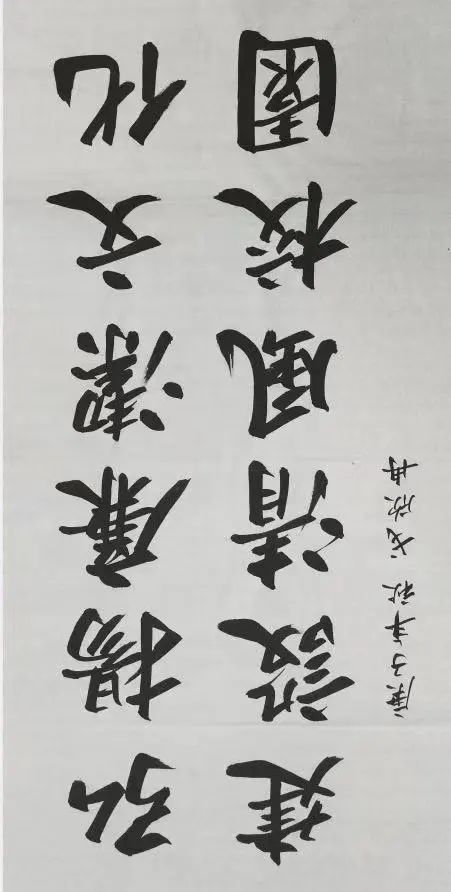 弘揚廉潔文化
建設清風校園
庚子年秋 戈欣冉